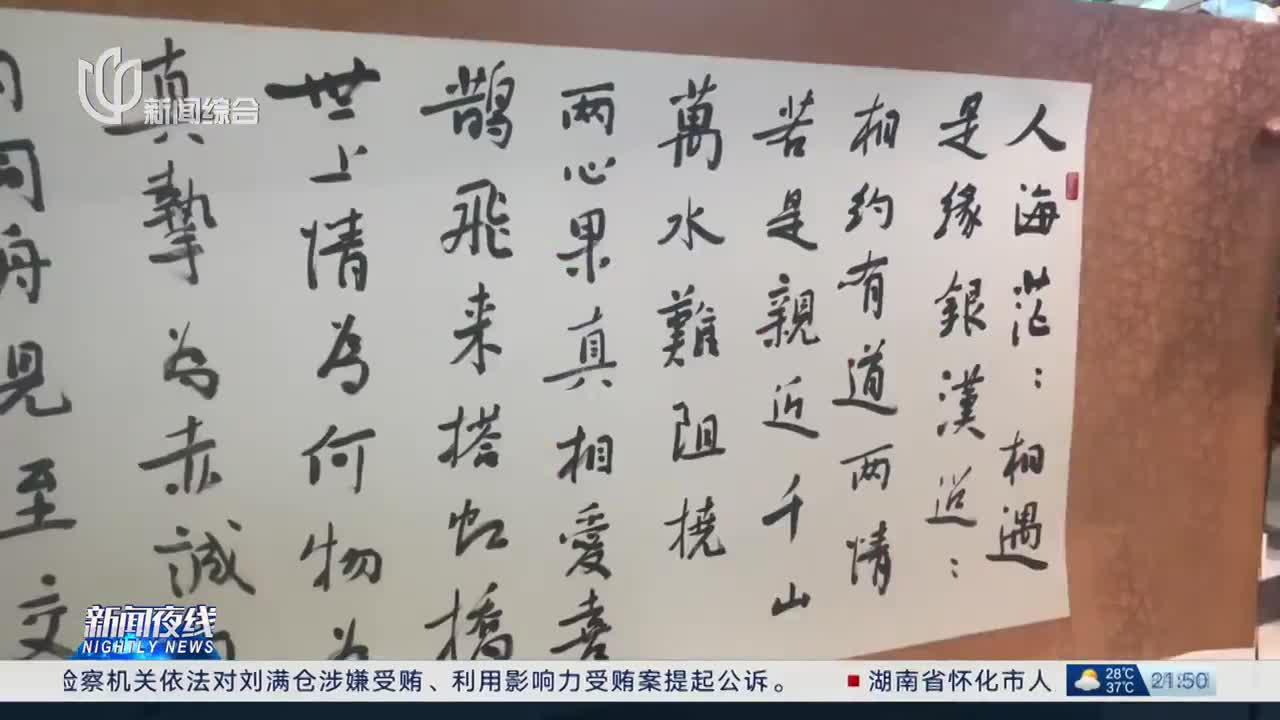 新闻综合
人海茫：相遇
是緣銀漢迢：
相约有道两情
若是親近千山
萬水難阻撓
两心果真相愛喜
鹊飛来搭虹橋
世上情為何物為
真摯為赤誠
同舟見至
新闻夜线
NIGHTLY NEWS
检察机关依法对刘满仓涉嫌受贿、利用影响力受贿案提起公诉。
湖南省怀化市人
28℃
37℃
21:50